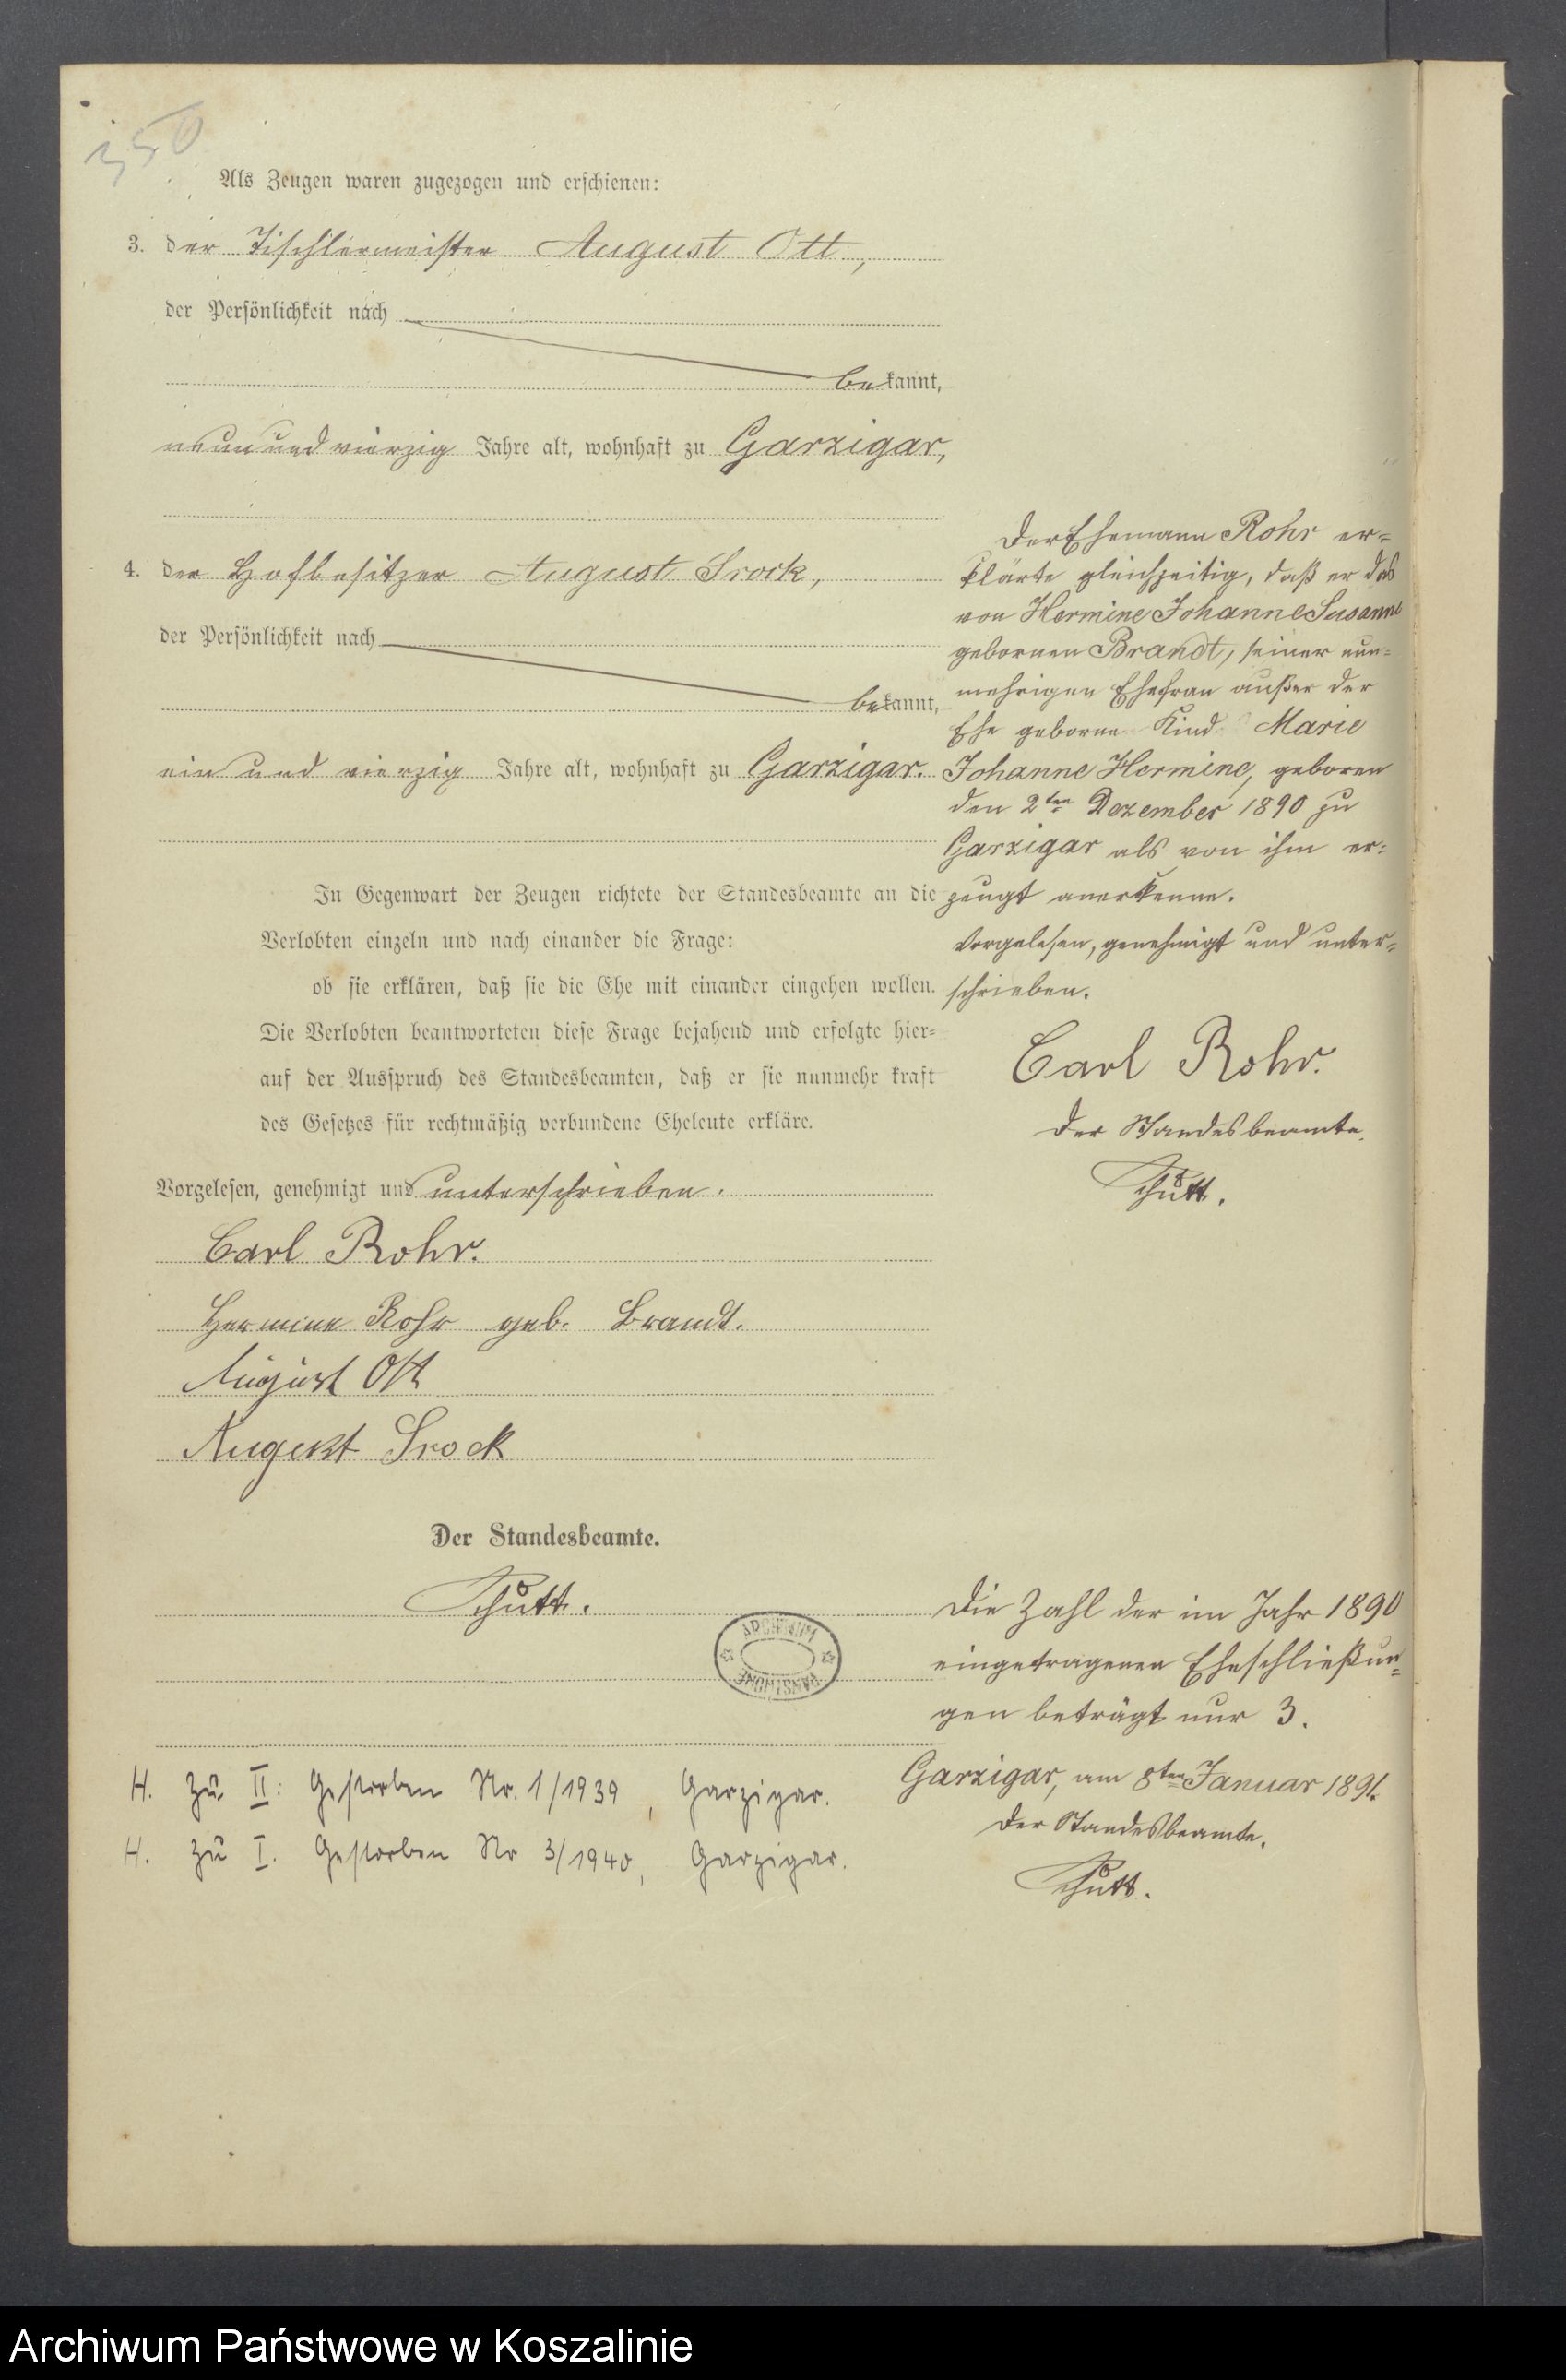 350
Als Zeugen waren zugezogen und erschienen:
3. der Tischlermeister August Ott,
der Persönlichkeit nach
bekannt,
neunundvierzig Jahre alt, wohnhaft zu Garzigar,
4. der Hofbesitzer August Srock,
der Persönlichkeit nach
bekannt,
ein und vierzig Jahre alt, wohnhaft zu Garzigar.
In Gegenwart der Zeugen richtete der Standesbeamte an die
Verlobten einzeln und nach einander die Frage:
ob sie erklären, daß sie die Ehe mit einander eingehen wollen.
Die Verlobten beantworteten diese Frage bejahend und erfolgte hier=
auf der Ausspruch des Standesbeamten, daß er sie nunmehr kraft
des Gesetzes für rechtmäßig verbundene Eheleute erkläre.
Vorgelesen, genehmigt und unterschrieben.
Carl Rohr.
Hermine Rohr geb. Brandt.
August Ott
August Srock
Der Standesbeamte.
Schütt.
Der Ehemann Rohr er=
klärte gleichzeitig, daß er das
von Hermine Johanne Susanne
gebornen Brandt, seiner nun=
mehrigen Ehefrau außer der
Ehe geborne Kind Marie
Johanne Hermine, geboren
den 2ten Dezember 1890 zu
Garzigar als von ihm er=
zeugt anerkenne.
Vorgelesen, genehmigt und unter=
schrieben.
Carl Rohr.
Der Standesbeamte.
Schütt.
Die Zahl der im Jahr 1890
eingetragenen Eheschließun=
gen beträgt nur 3.
Garzigar, am 8ten Januar 1891.
Der Standesbeamte.
Schütt.
H. Zu II: Gestorben Nr. 1/1939, Garzigar.
H. Zu I. Gestorben Nr 3/1940, Garzigar.
ARCHIWUM
PAŃSTWOWE
Archiwum Państwowe w Koszalinie